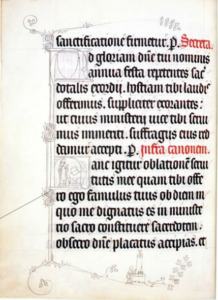 sanctificatione firmetur. P. Secreta.
d gloriam dne tui nominis
annua festa repetentes sac
dotalis exordij. hostiam tibi laudis
offerimus. suppliciter exorantes:
ut cuius ministerij vice tibi servi
mus immeriti. suffragijs eius red
damur accepti. P. Infra canonem.
anc igitur oblationem servi
tutis mee quam tibi offe
ro ego famulus tuus ob diem in
quo me dignatus es in ministe
rio sacro constituere sacerdotem:
obsecro dne placatus accipias. et